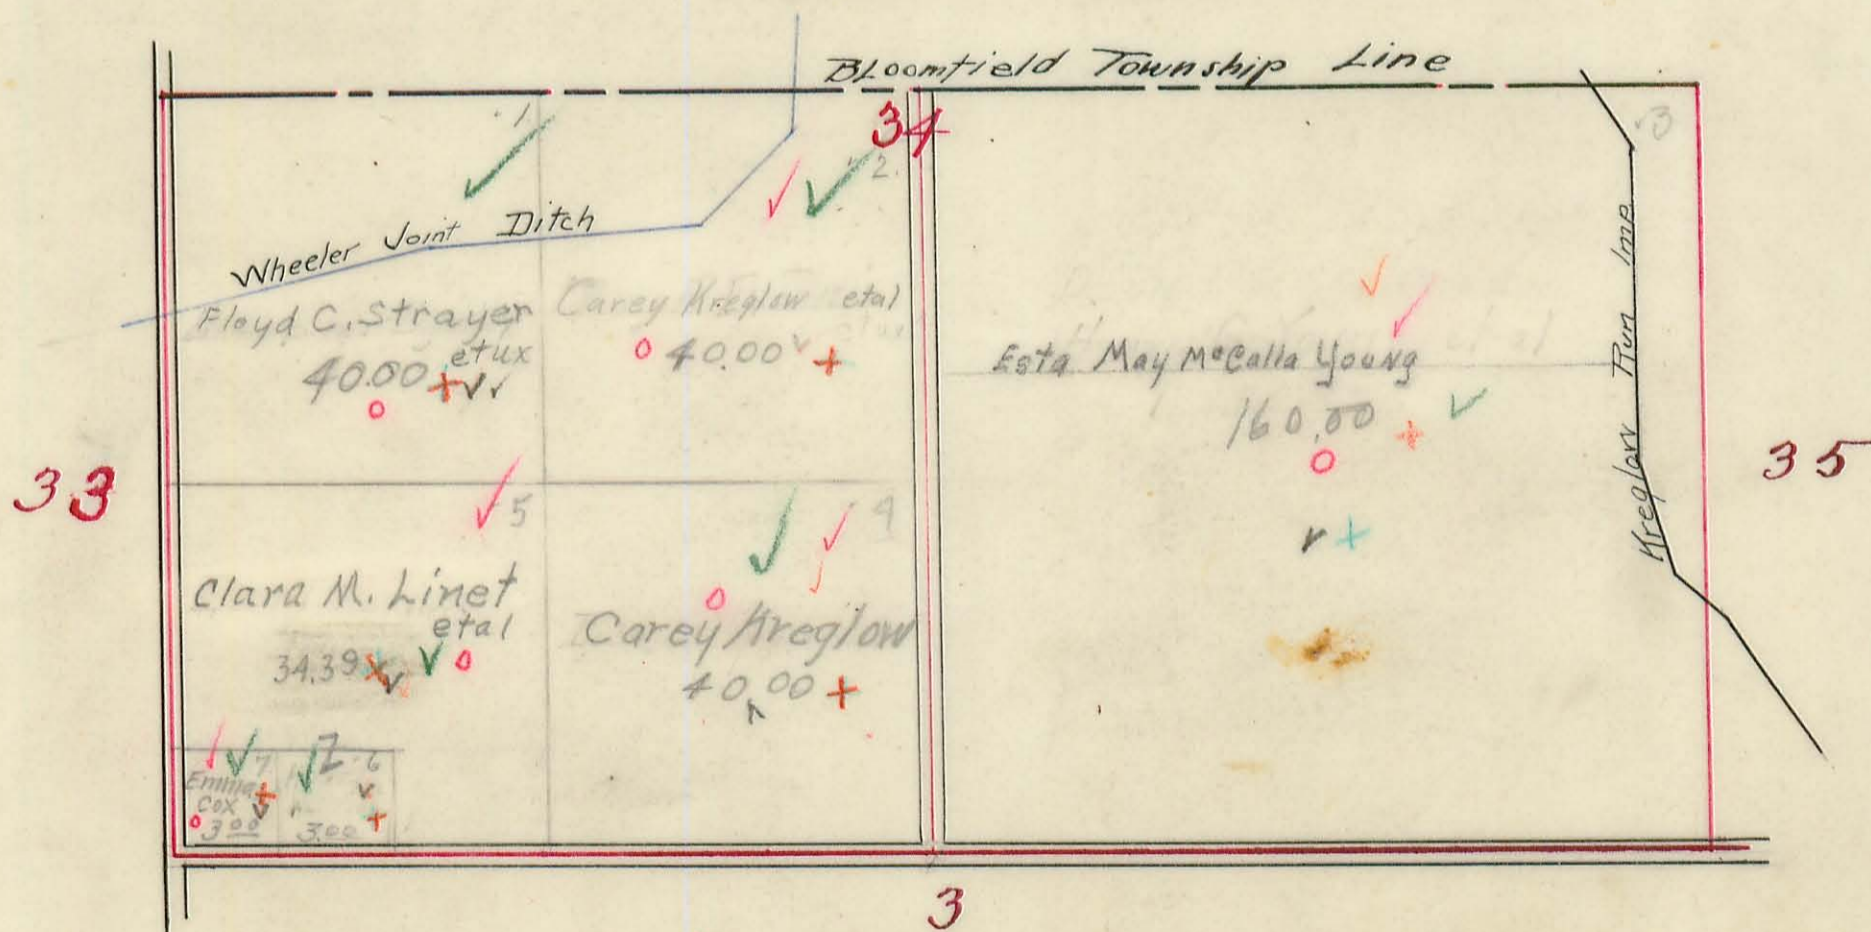 Bloomfield Township Line
34
.1.
2.
3
Wheeler Joint Ditch
Floyd C. Strayer
etux
40.00
Carey Kreglow etal
40.00
Esta May McCalla Young
160.00
Kreglow Run Imp.
33
35
5
4
Clara M. Linet
etal
34.39
Carey Kreglow
40.00
7
Emma
Cox
3.00
6
3.00
3